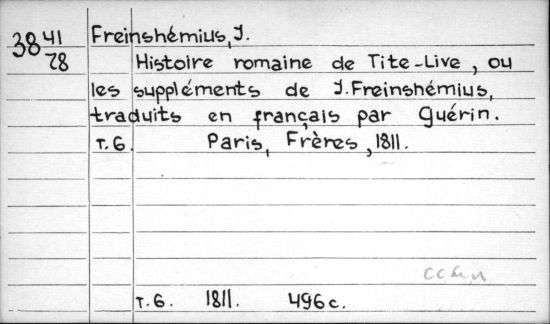 38 41/78 Freinshémius, J.
Histoire romaine de Tite-Live, ou
les suppléments de J. Freinshémius,
traduits en français par Guérin.
T.6. Paris, Frères, 1811.
T.6. 1811. 496 c.